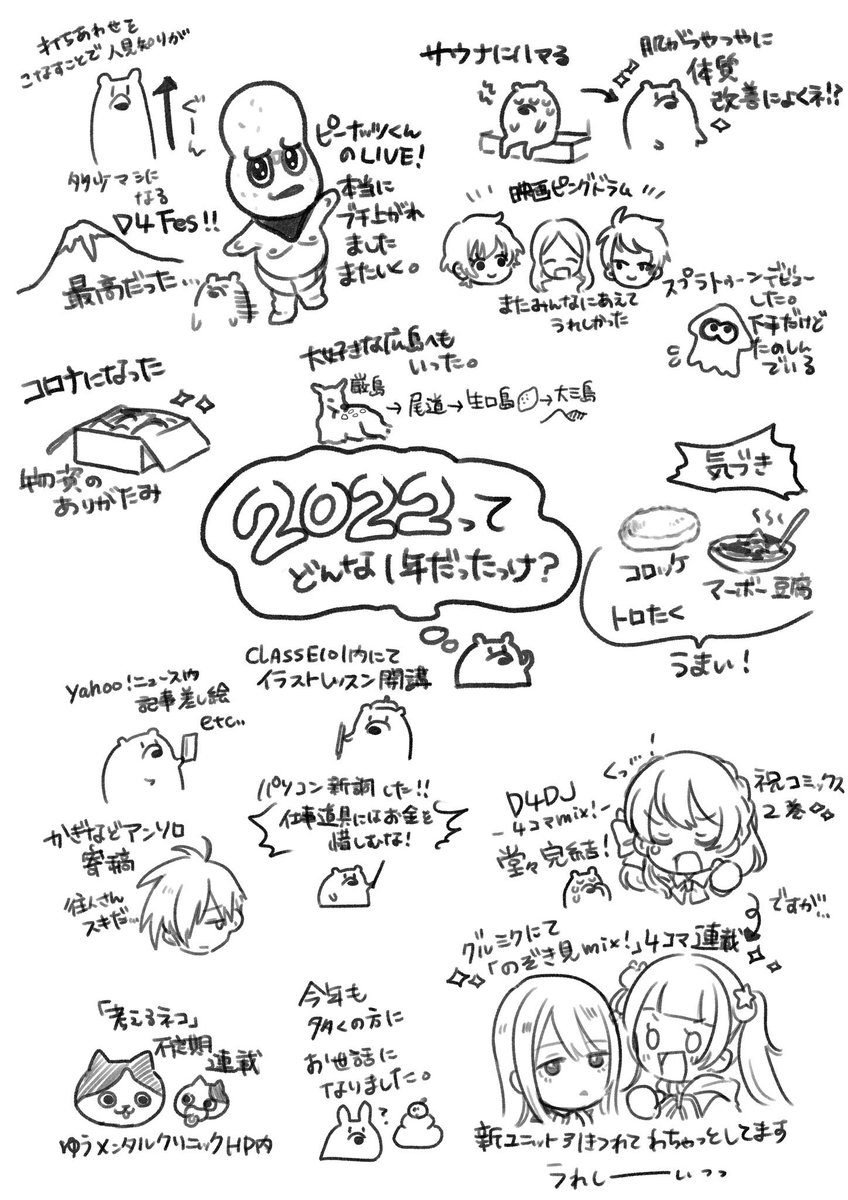 打ちあわせを
こなすことで人見知りが
ぐーん
タクマシに
なる
D4 Fes!!
最高だった…
ピーナッツくん
のLIVE!
本当に
ブチ上がれ
ました
またいく。
サウナにハマる
肌がつやつやに
体質
改善によくネ!?
映画ピングドラム
またみんなにあえて
うれしかった
スプラトゥーンデビュー
した。
下手だけど
たのしん
でいる
コロナになった
物資の
ありがたみ
大好きな広島へも
いった。
厳島
→尾道→生口島→大三島
2022って
どんな1年だったっけ?
気づき
コロッケ
マーボー豆腐
トロたく
うまい!
Yahoo!ニュースや
記事差し絵
etc..
CLASS101内にて
イラストレッスン開講
かぎなどアンソロ
寄稿
往人さん
スキだ…
パソコン新調した!!
仕事道具にはお金を
惜しむな!
D4DJ
-4コマmix!-
堂々完結!
くっ…!
祝コミックス
2巻
ですが…
グルミクにて
「のぞき見mix!」4コマ連載
新ユニット引きつれてわちゃっとしてます
うれしーーいっっ
「考えるネコ」
不定期
連載
ゆうメンタルクリニックHP内
今年も
多くの方に
お世話に
なりました。
?